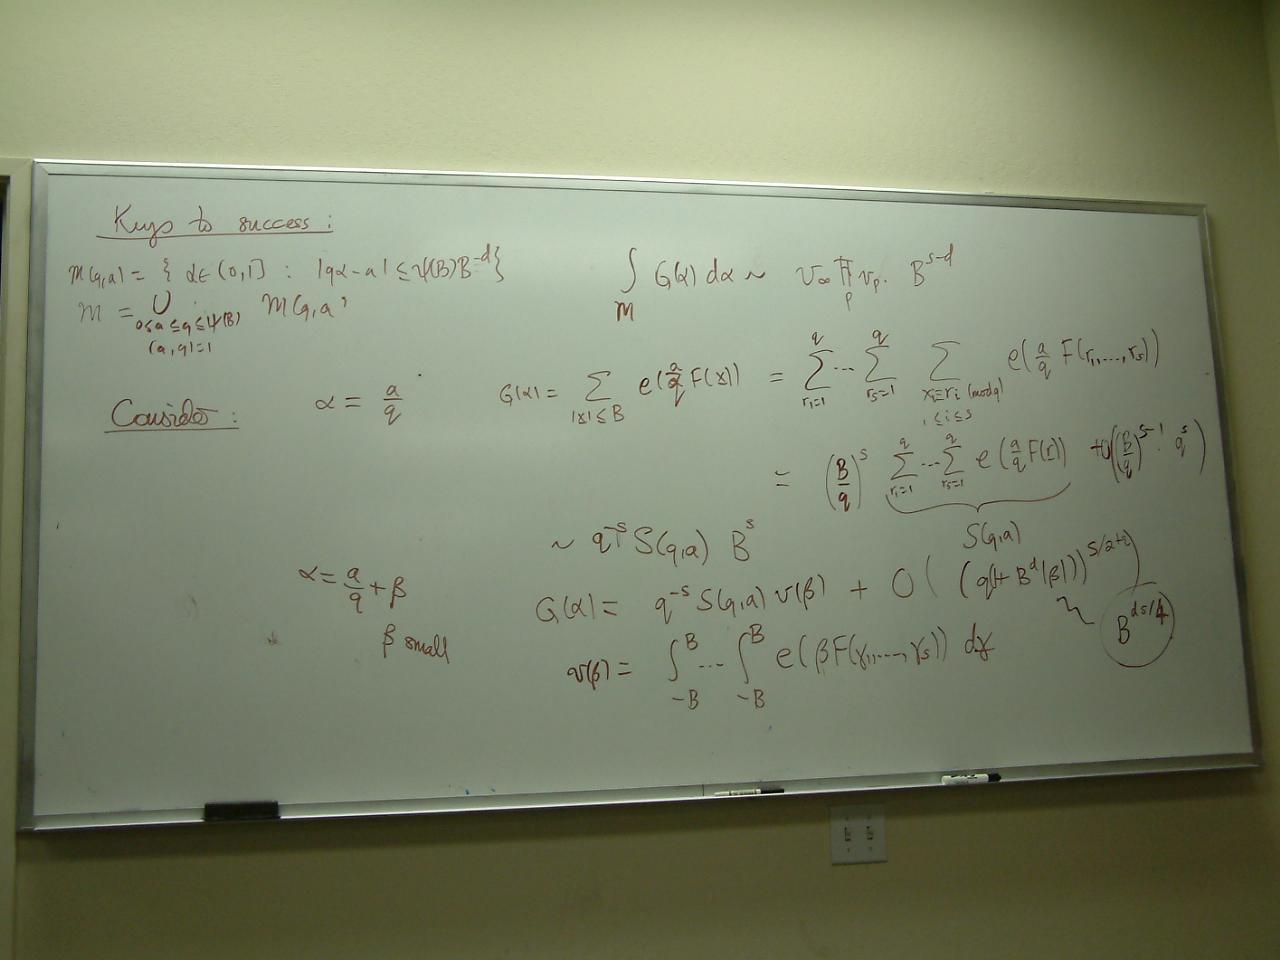 Keys to success:
m(q,a) = { α∈(0,1] : |qα-a| ≤ ψ(B)B^{-d} }
m = ∪_{0≤a≤q≤ψ(B), (a,q)=1} m(q,a)
∫_M G(α) dα ~ v_∞ ∏_p v_p · B^{s-d}
Consider:
α = a/q
G(α) = ∑_{|x|≤B} e(a/q F(x)) = ∑_{r_1=1}^{q} ... ∑_{r_s=1}^{q} ∑_{x_i≡r_i (mod q), 1≤i≤s} e(a/q F(r_1,...,r_s))
= (B/q)^s ∑_{r_1=1}^{q} ... ∑_{r_s=1}^{q} e(a/q F(r)) + O((B/q)^{s-1} · q^s)
S(q,a)
~ q^{-s} S(q,a) B^s
α = a/q + β
β small
G(α) = q^{-s} S(q,a) v(β) + O( (q(1+B^d|β|))^{s/2+ε} )
B^{ds/4}
v(β) = ∫_{-B}^{B} ... ∫_{-B}^{B} e(βF(γ_1,...,γ_s)) dγ